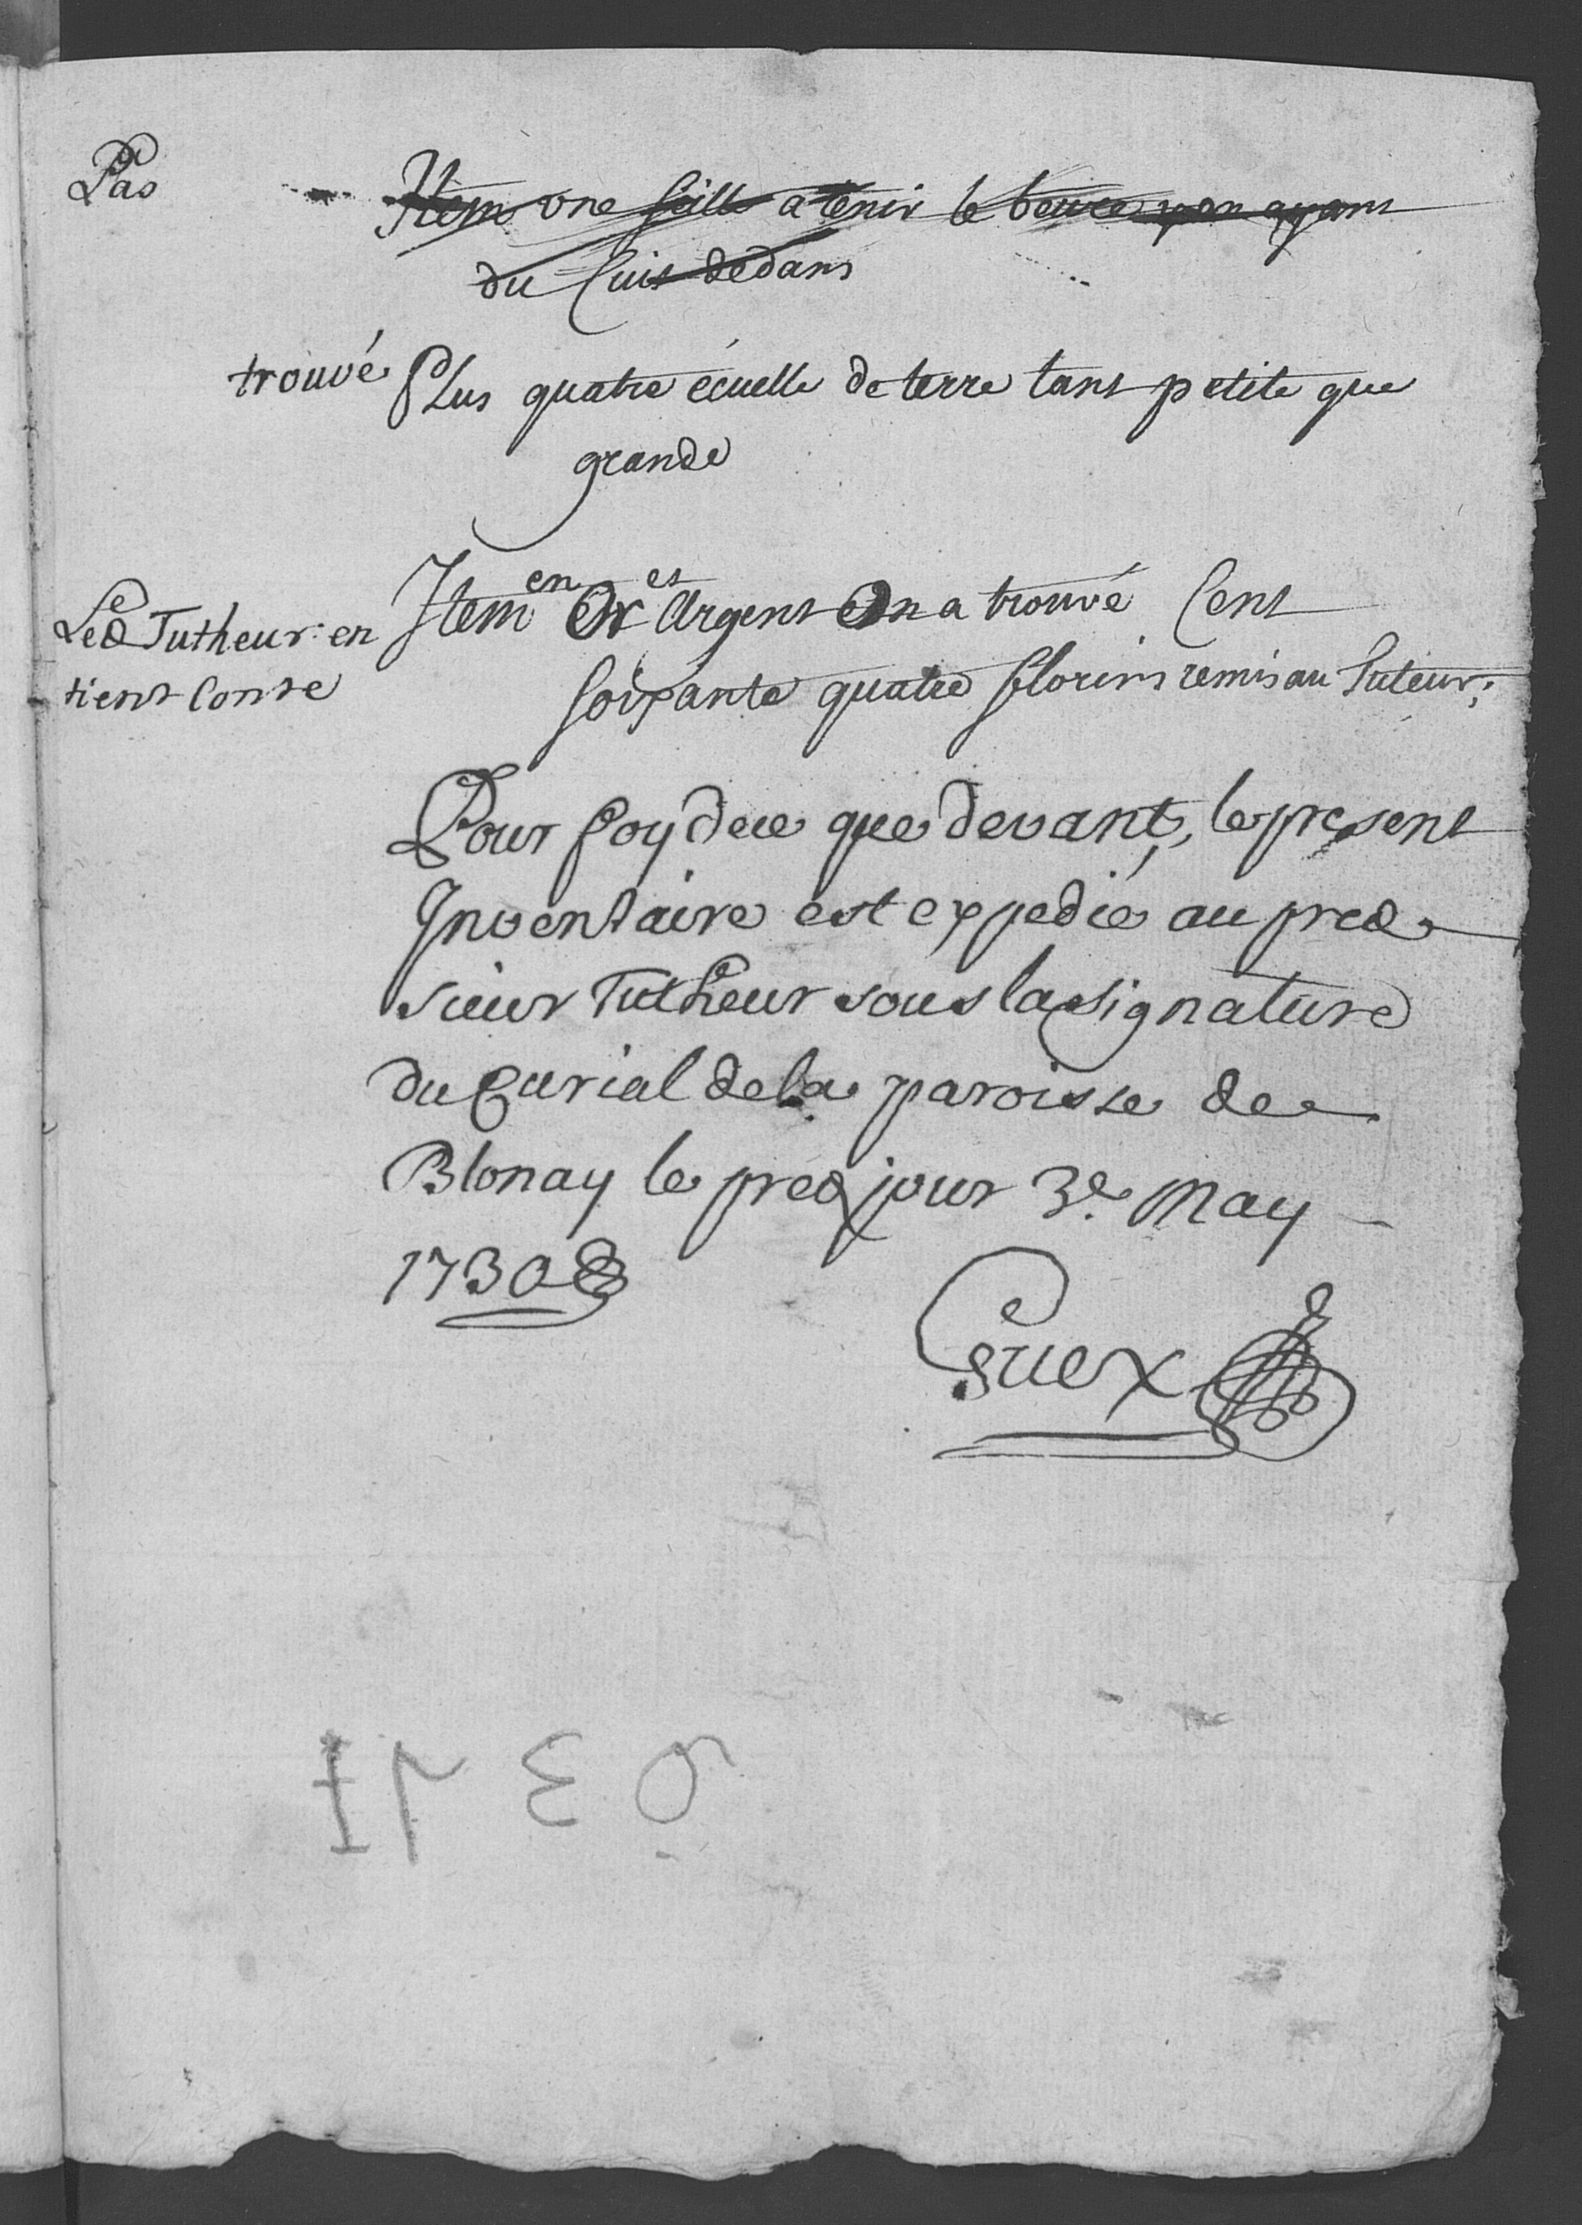 Pas
Item une seille a tenir le beure y en ayant
du Cuit dedans
trouvé Plus quatre écuelle de terre tant petite que
grande
Led Tutheur en
tient Conte
Item en Or et Argent On a trouvé Cent
soixante quatre florins remis au Tuteur;
Pour foy de ce que devant, le present
Inventaire est expedié au pred
sieur Tutheur sous la signature
du Curial de la paroisse de
Blonay le pred jour 3e. May
1730
Guex